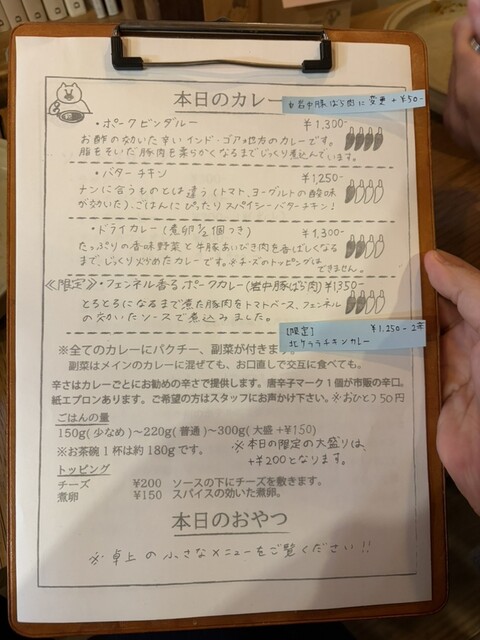 本日のカレー
岩中豚ばら肉に変更 +¥50-
・ポークビンダルー ¥1,300-
お酢の効いた辛いインド・ゴア地方のカレーです。
脂をそいだ豚肉を柔らかくなるまでじっくり煮込んでいます。
・バターチキン ¥1,250-
ナンに合うものとは違う(トマト、ヨーグルトの酸味
が効いた)、ごはんにぴったりスパイシーバターチキン!
・ドライカレー(煮卵½個つき) ¥1,300-
たっぷりの香味野菜と牛豚あいびき肉を香ばしくなる
まで、じっくり炒めたカレーです。※チーズのトッピングは
できません。
≪限定≫・フェンネル香るポークカレー(岩中豚ばら肉)¥1,350-
とろとろになるまで煮た豚肉をトマトベース、フェンネル
の効いたソースで煮込みました。
【限定】 ¥1,250-
北ケララチキンカレー
※全てのカレーにパクチー、副菜が付きます。
副菜はメインのカレーに混ぜても、お口直しで交互に食べても。
辛さはカレーごとにお勧めの辛さで提供します。唐辛子マーク1個が市販の辛口。
紙エプロンあります。ご希望の方はスタッフにお声かけ下さい。※おひとつ50円
ごはんの量
150g(少なめ)~220g(普通)~300g(大盛+¥150)
※お茶碗1杯は約180gです。 ※本日の限定の大盛りは、
+¥200となります。
トッピング
チーズ ¥200 ソースの下にチーズを敷きます。
煮卵 ¥150 スパイスの効いた煮卵。
本日のおやつ
※卓上の小さなメニューをご覧ください!!